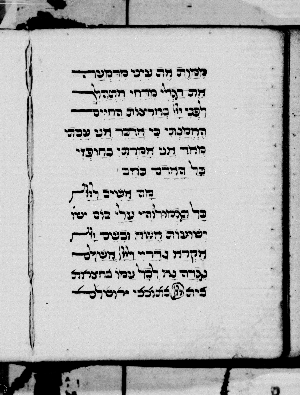 ממות את עיני מדמעה
את רגלי מדחי אתהלך
לפני יי בארצות החיים
האמנתי כי אדבר אני עניתי
מאד אני אמרתי בחפזי
כל האדם כזב
מה אשיב ליי
כל תגמולוהי עלי כוס ישו
ישועות אשא ובשם יי
אקרא נדרי ליי אשלם
נגדה נא לכל עמו בחצרות
בית יי בתוככי ירושלם